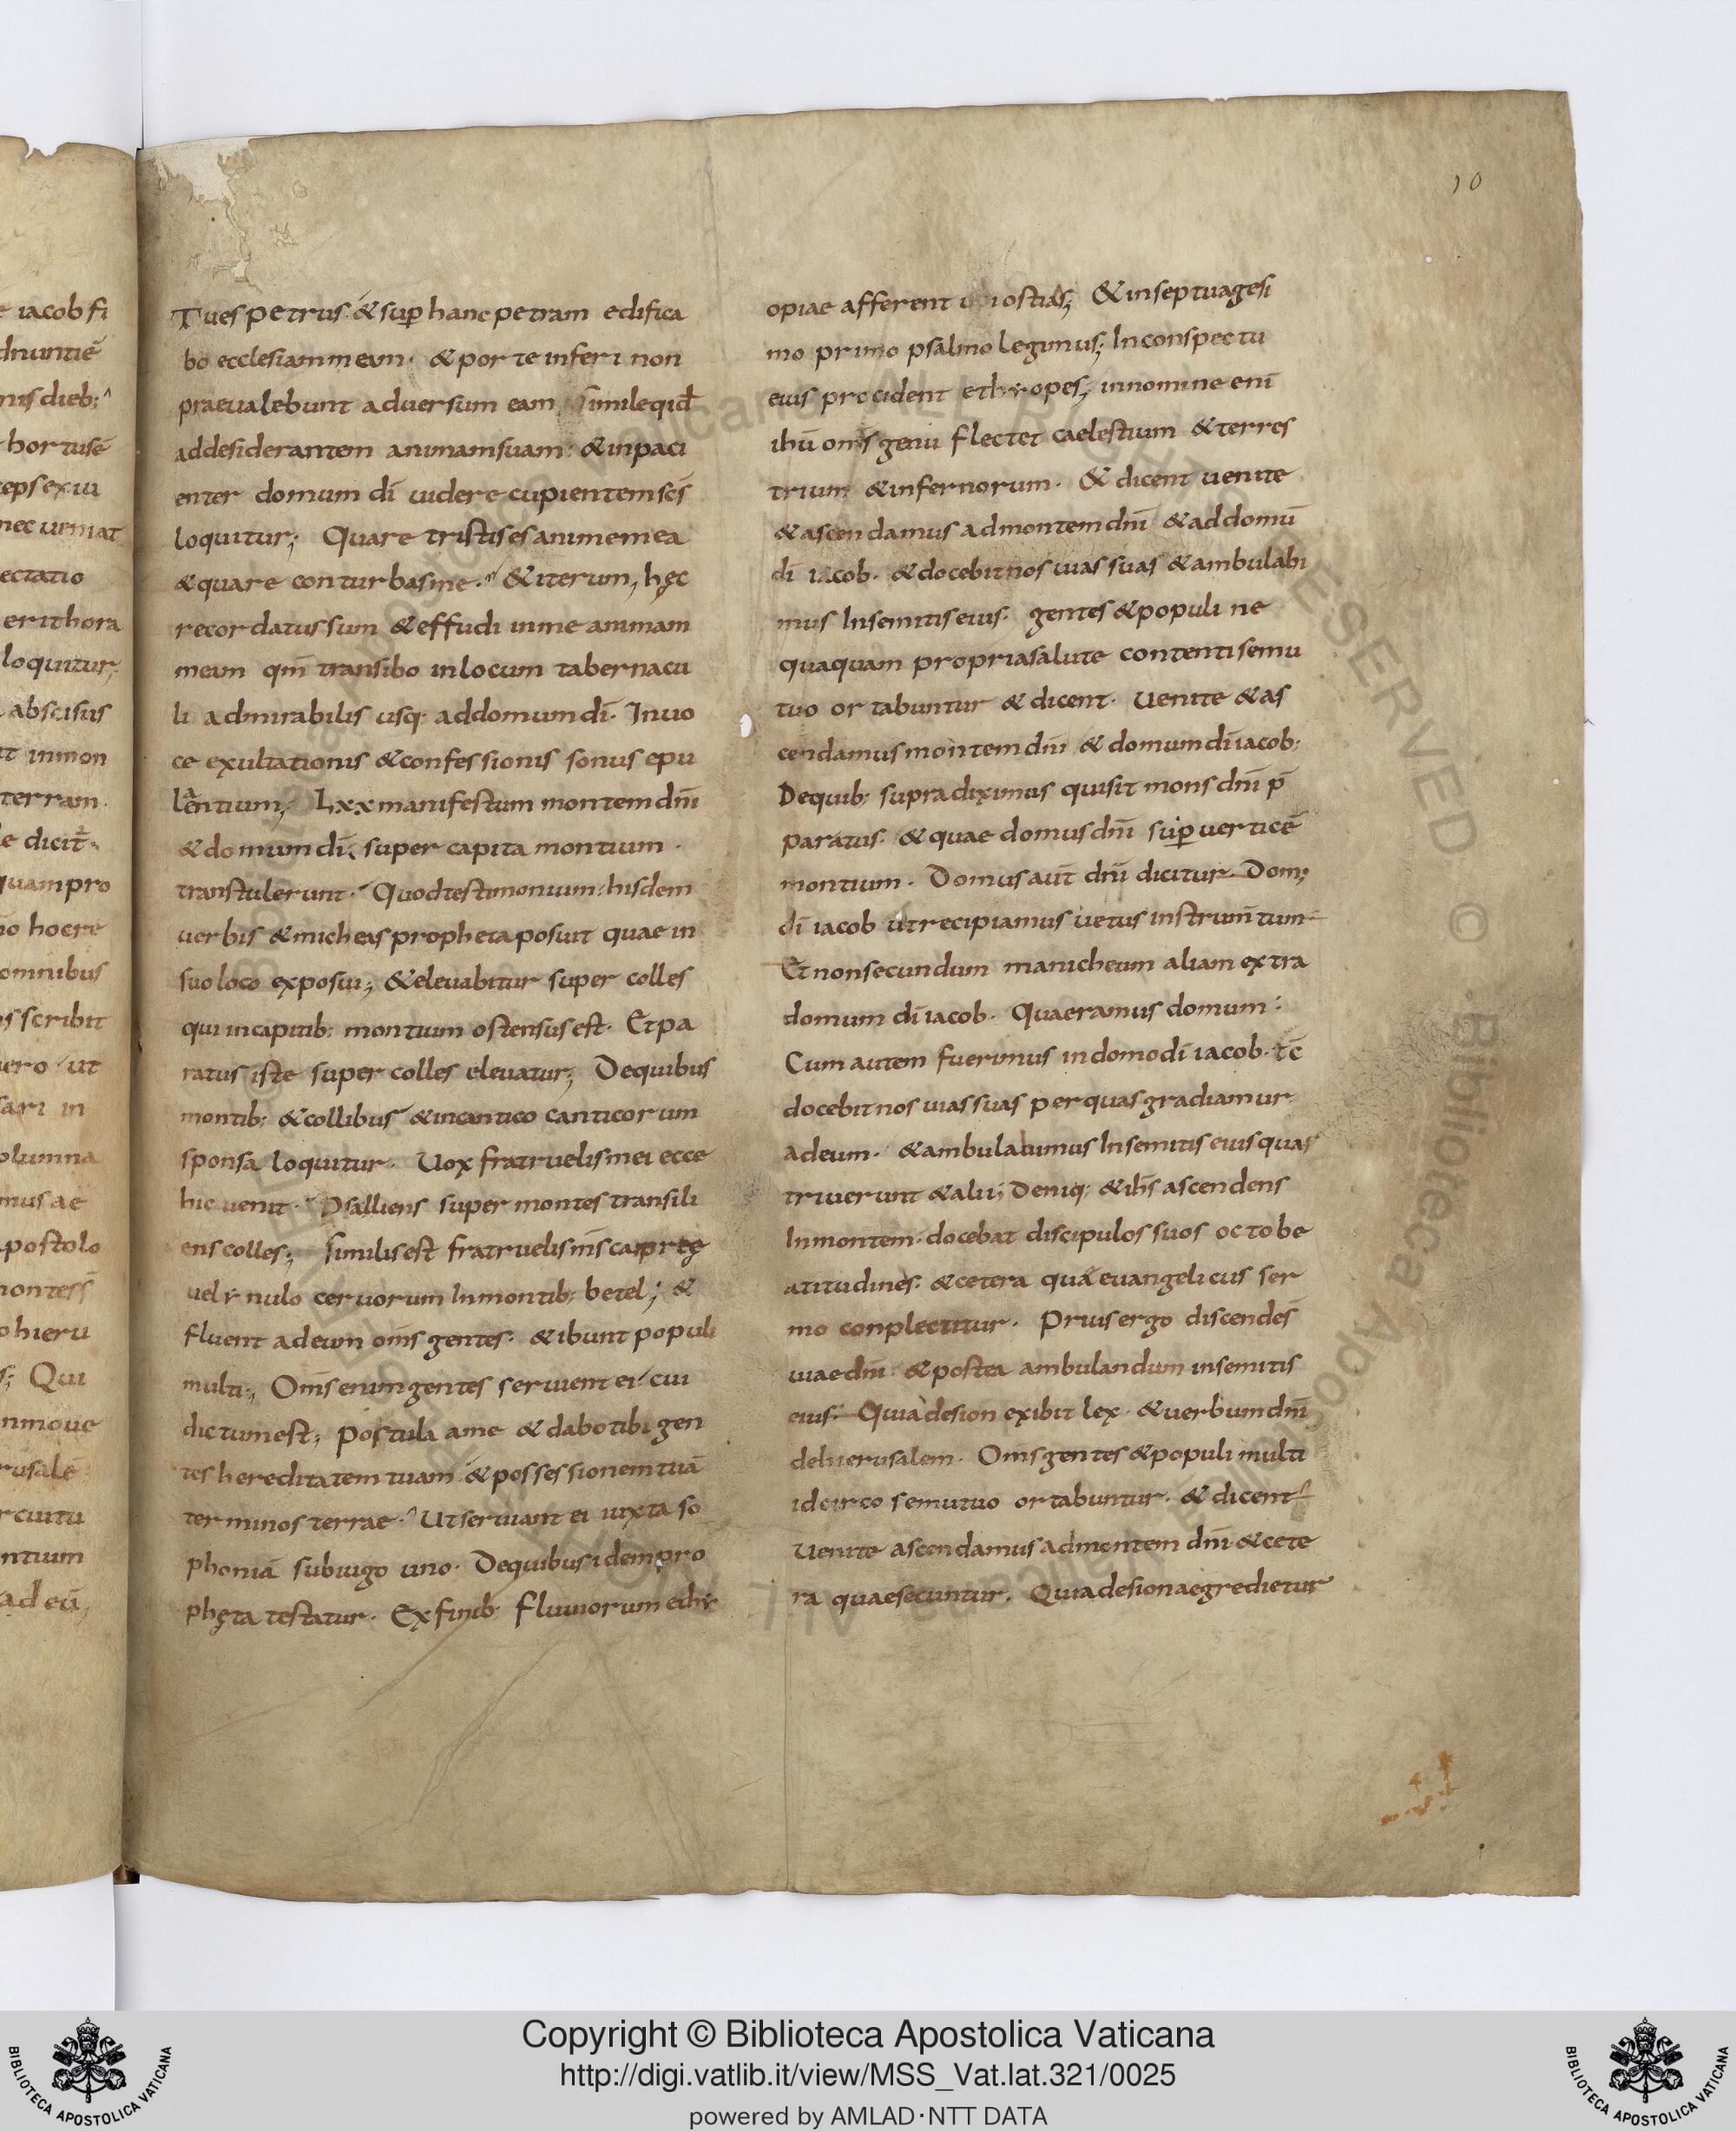 10
e iacob fi
dnuntiē
nis dieb;
hortusē
ceps exiu
nec ueniat
ectatio
erit hora
loquitur;
abscisus
tt inmon
terram.
quampro
omnibus
scribit
uero ut
sari in
olumna
mus ae
postolo
ohieru
s; Qui
nmoue
rusalē
rcuitu
ntium
ad eū,
Tu es petrus & sup hanc petram edifica
bo ecclesiam meam. & porte inferi non
praeualebunt aduersum eam. Simile qid
ad desiderantem animam suam: & inpaci
enter domum dī uidere cupientem scī
loquitur; Quare tristis es anime mea
& quare conturbas me. & iterum, hęc
recordatus sum & effudi in me animam
meam qm̄ transibo in locum tabernacu
li admirabilis usq; ad domum dī. In uo
ce exultationis & confessionis sonus epu
lantium; Lxx manifestum montem dn̄i
& domum dī. super capita montium.
transtulerunt. Quod testimonium. hisdem
uerbis & micheas propheta posuit quae in
suo loco exposui; & eleuabitur super colles
qui in capitib; montium ostensus est. Et pa
ratus iste super colles eleuatur; De quibus
montib; & collibus & in cantico canticorum
sponsa loquitur. Uox fratruelis mei ecce
hic uenit. Psalliens super montes transili
ens colles; Similis est fratruelis ms̄ capreę
uel ynulo ceruorum In montib; betel; &
fluent ad eum om̄s gentes. & ibunt populi
multi; Om̄s enim gentes seruient ei cui
dictum est; Postula a me & dabo tibi gen
tes hereditatem tuam & possessionem tuā
terminos terrae. Ut seruiant ei iuxta so
phoniā sub iugo uno. De quibus idem pro
phęta testatur. Ex finib; fluuiorum ethy
opiae afferent ostias; & in septuagesi
mo primo psalmo legimus; In conspectu
eius procident ethyopes; in nomine enī
ihū om̄s genu flectet caelestium & terres
trium & infernorum. & dicent uenite
& ascendamus ad montem dn̄i & ad domū
dī iacob. & docebit nos uias suas & ambulabi
mus In semitis eius. gentes & populi ne
quaquam propria salute contenti se mu
tuo ortabuntur & dicent. Uenite & as
cendamus montem dn̄i & domum dī iacob;
De quib; supra diximus qui sit mons dn̄i p̄
paratus. & quae domus dn̄i sup uerticē
montium. Domus aūt dn̄i dicitur. Dom;
dī iacob ut recipiamus uetus instrum̄tum
Et non secundum manicheum aliam extra
domum dī iacob. Quaeramus domum:
Cum autem fuerimus in domo dī iacob. tc̄
docebit nos uias suas per quas gradiamur
ad eum. & ambulabimus In semitis eius quas
triuerunt & alii; Deniq; & ihs̄ ascendens
In montem. docebat discipulos suos octo be
atitudines. & cetera quā euangelicus ser
mo conplectitur. Prius ergo discendēs
uiae dn̄i & postea ambulandum in semitis
eius. Quia de sion exibit lex. & uerbum dn̄i
de hierusalem. Om̄s gentes & populi multi
idcirco se mutuo ortabuntur. & dicent
Uenite ascendamus ad montem dn̄i & cete
ra quae secuntur. Quia de sion aegredietur
Copyright © Biblioteca Apostolica Vaticana
http://digi.vatlib.it/view/MSS_Vat.lat.321/0025
powered by AMLAD·NTT DATA
BIBLIOTECA APOSTOLICA VATICANA
BIBLIOTECA APOSTOLICA VATICANA